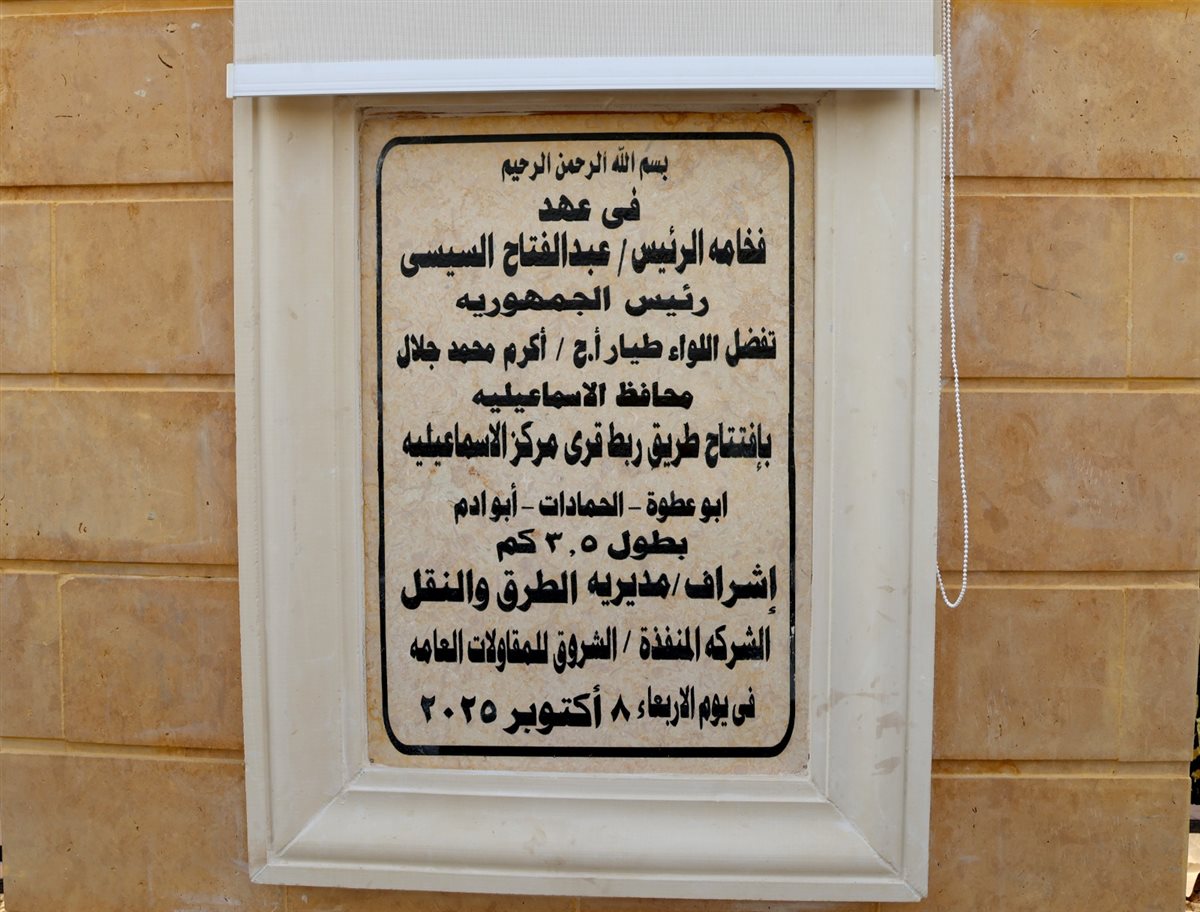 بسم الله الرحمن الرحيم
فى عهد
فخامه الرئيس / عبدالفتاح السيسى
رئيس الجمهوريه
تفضل اللواء طيار أ.ح / أكرم محمد جلال
محافظ الاسماعيليه
بإفتتاح طريق ربط قرى مركز الاسماعيليه
ابو عطوة - الحمادات - أبو ادم
بطول ٣,٥ كم
إشراف/مديريه الطرق والنقل
الشركه المنفذة / الشروق للمقاولات العامه
فى يوم الاربعاء ٨ أكتوبر ٢٠٢٥